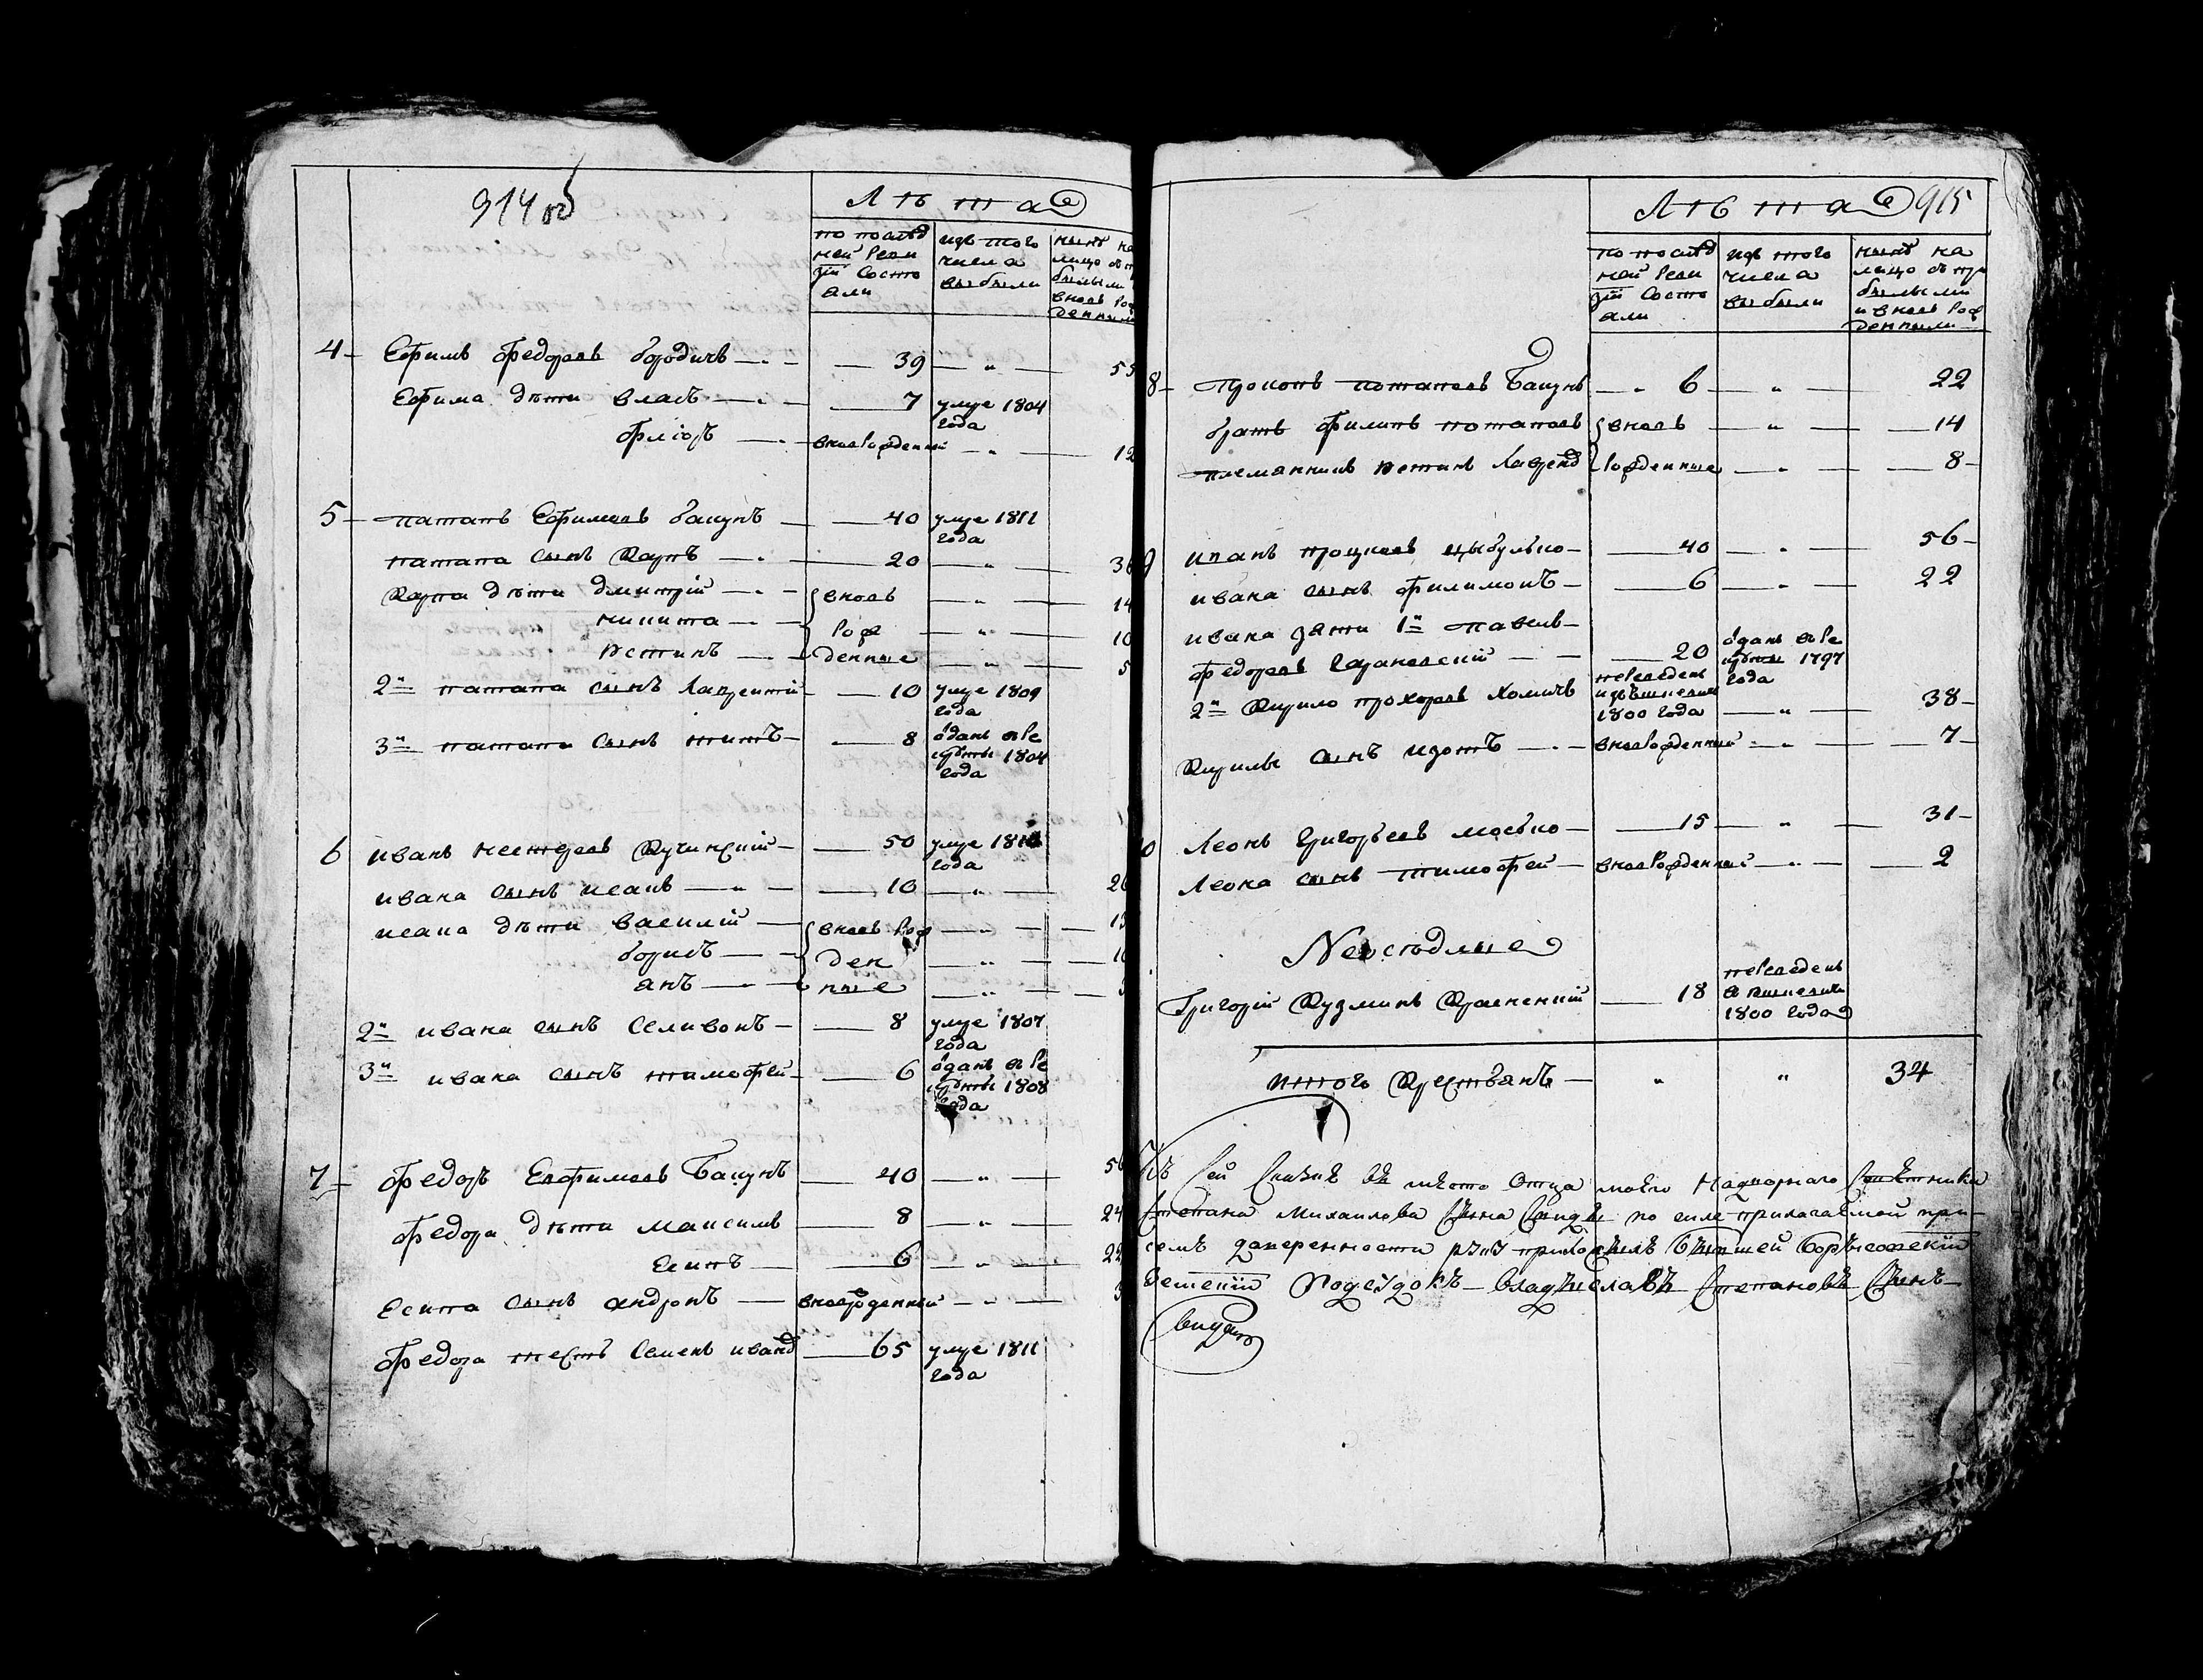 914 об
Лѣта
по послѣд
ней реви
зіи состо
али
изъ того
числа
выбыли
нынѣ на
лицо съ п
былыми
вновь рож
денными
4 Ефимъ Федоровъ бородичъ 39 " 55
Ефима дѣти власъ 7 умре 1804
года
фліоръ вноврожденный " 12
5 патапъ Ефимовъ бакунъ 40 умре 1811
года
патапа сынъ Карпъ 20 " 36
Карпа дѣти дмитрій вновь " 14
никита рож " 10
устинъ денные " 5
2й патапа сынъ лаврентій 10 умре 1809
года
3й патапа сынъ титъ 8 оданъ в ре
круты 1804
года
6 иванъ нестеровъ Кучинскій 50 умре 1811
года
ивана сынъ исакъ 10 " 26
исака дѣти василій вновь рож " 13
борисъ ден " 10
янъ ные "
2й ивана сынъ Селивонъ 8 умре 1807
года
3й ивана сынъ тимофей 6 оданъ в ре
круты 1808
года
7 Федоръ Евфимовъ Бакунъ 40 " 56
Федора дѣти максимъ 8 " 24
Есипъ 6 " 22
Есипа сынъ андронъ вноврожденный " 3
Федора тесть Семенъ иванов 65 умре 1811
года
Лѣта 915
по послѣд
ней реви
зіи состо
али
изъ того
числа
выбыли
нынѣ на
лицо съ при
былыми
и вновь рож
денными
8 прокопъ потаповъ Бакунъ 6 " 22
братъ филипъ потаповъ вновь " 14
племянникъ устинъ лавренов рожденные " 8
9 иванъ процковъ цыбулько 40 " 56
ивана сынъ филимонъ 6 " 22
ивана зяти 1й павелъ
федоровъ Барановскій 20 оданъ в ре
круты 1797
года
переведенъ
2й Кирило прохоровъ Хомичъ 1800 года " 38
Кирилы сынъ изотъ вноврожденный " 7
10 Леонъ Григорьевъ мосько 15 " 31
Леона сынъ тимофей вноврожденный " 2
Неосѣдлые
Григорій Кузминъ Красненкій 18 переведенъ
1800 года
итого Крестьянъ " " 34
Къ сей сказкѣ въ мѣсто отца моего Надворнаго Совѣтника
Степана Михаилова Сына по силе прилагаемой при
семъ даверенности руку приложилъ бывшей борысовскій
Земскій Подсудокъ владыславъ Степановъ Сынъ